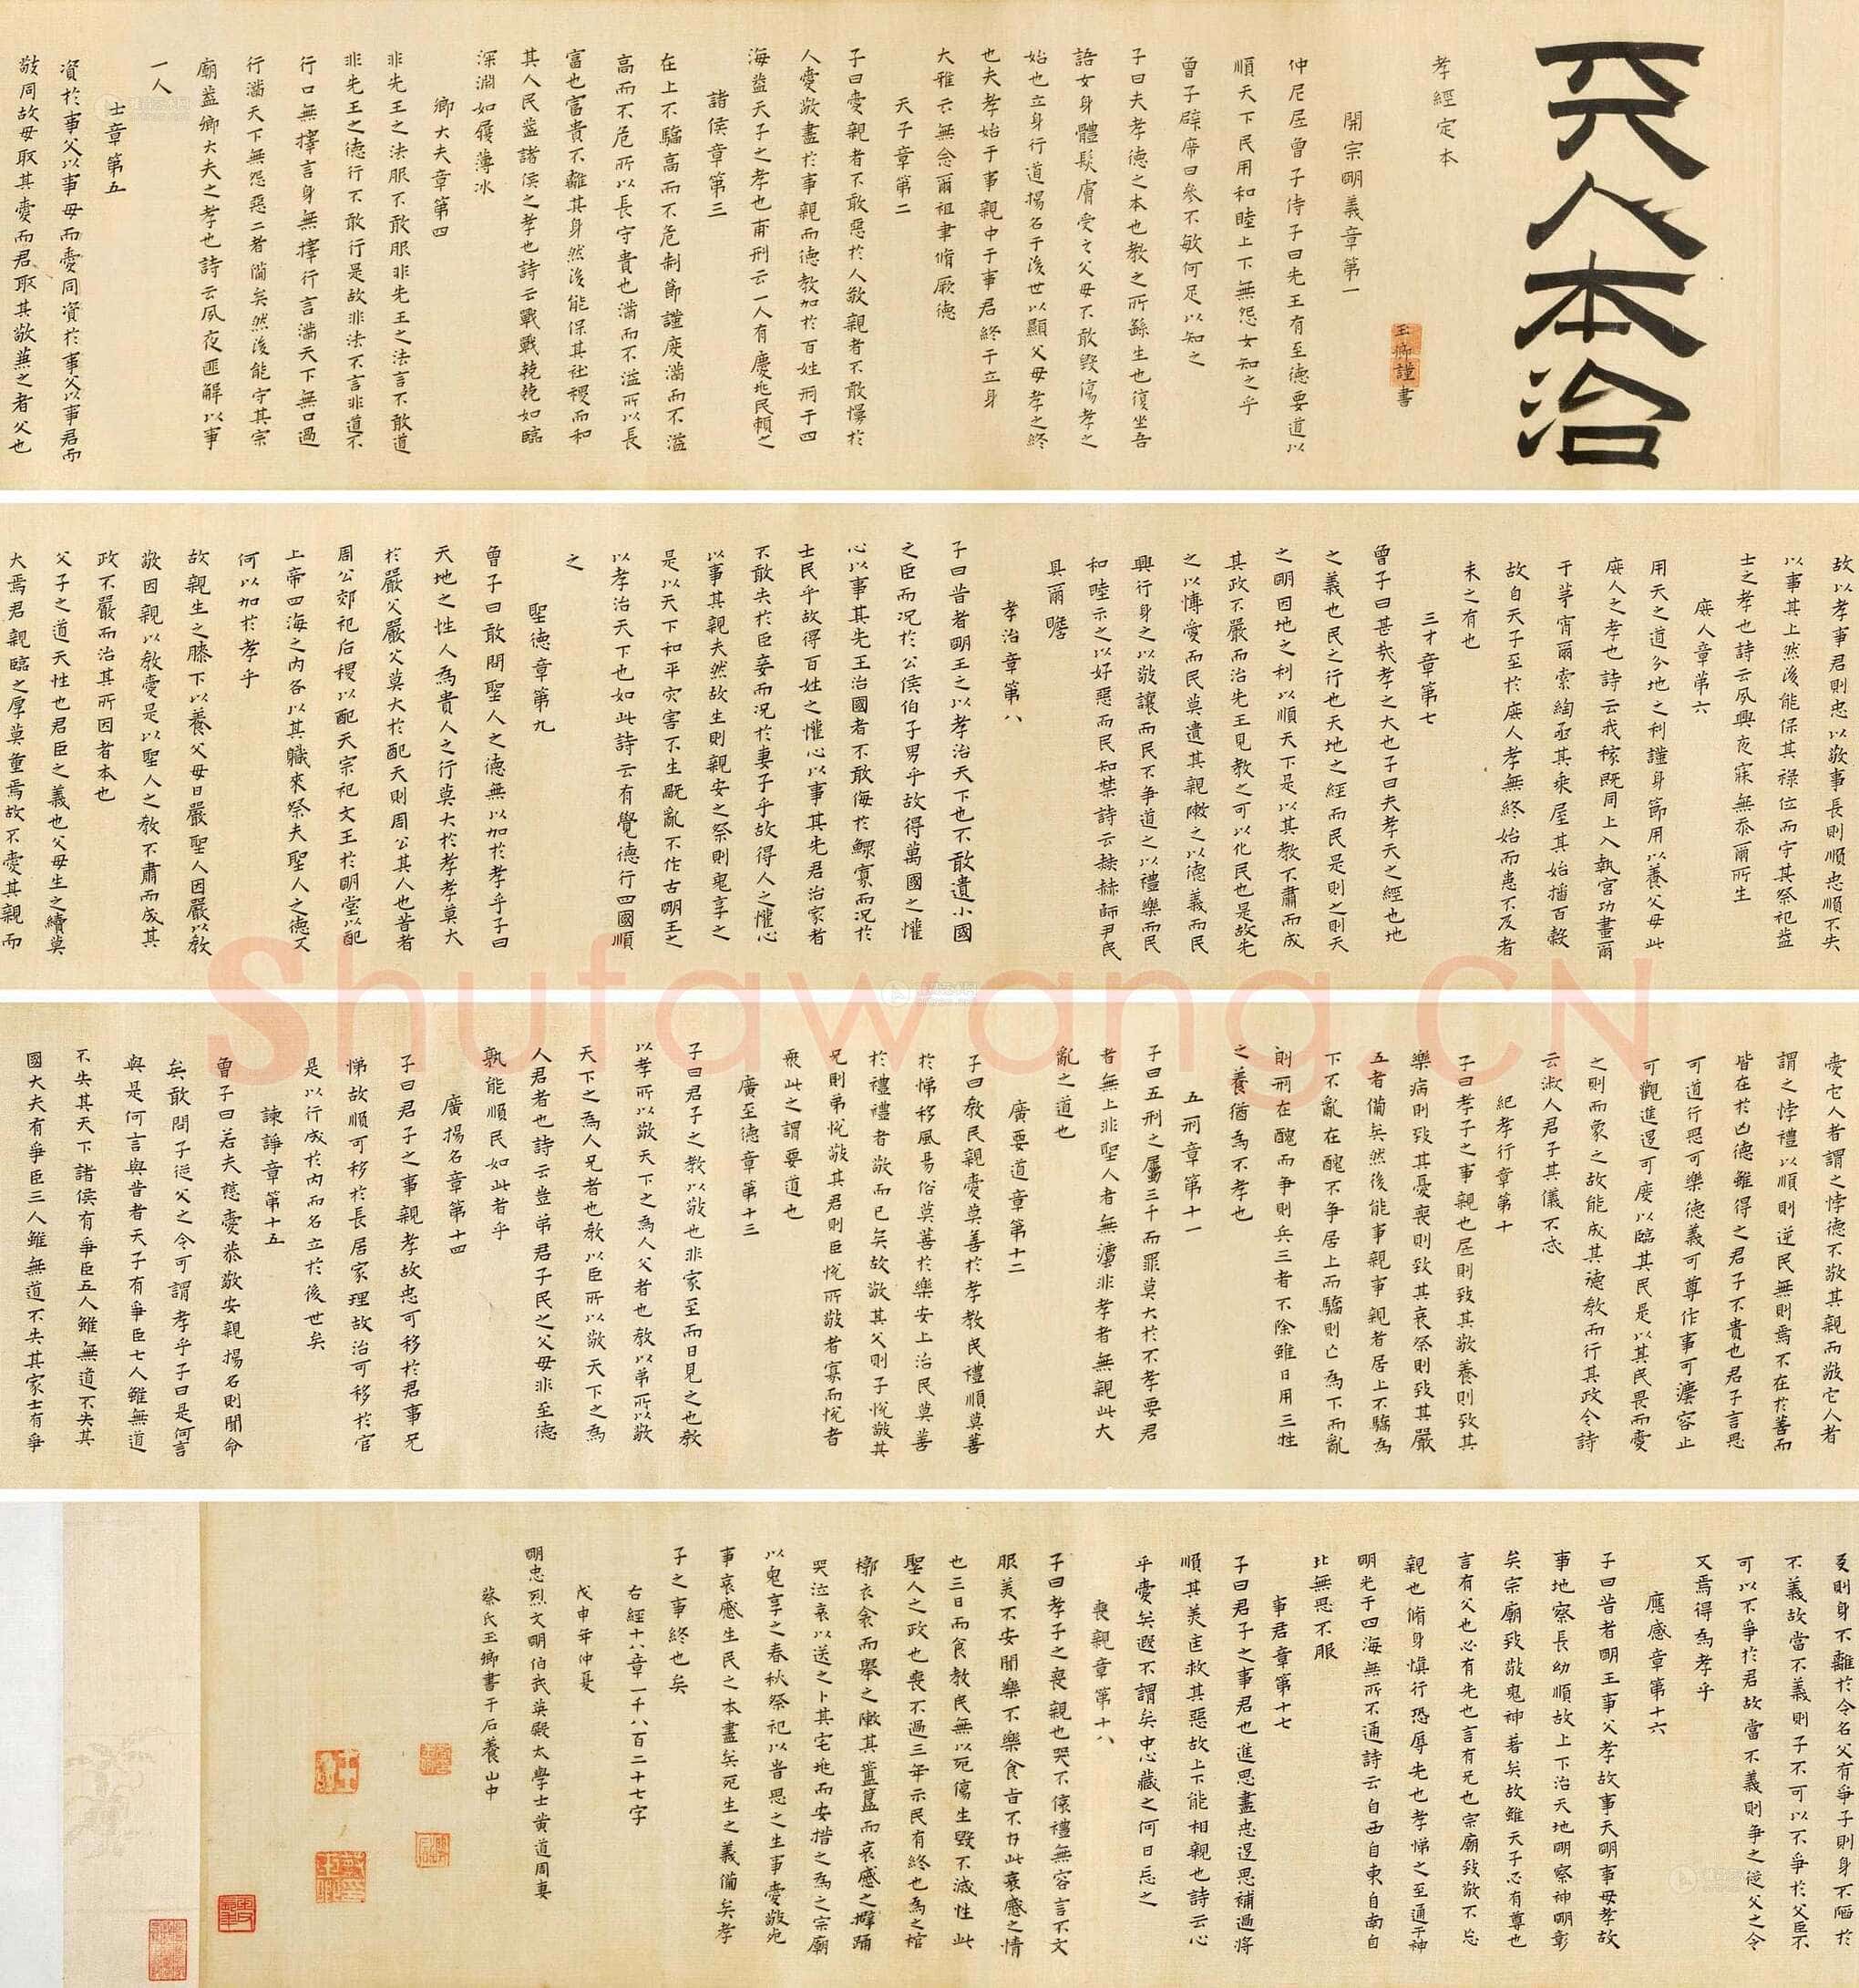 天人本治
孝經定本
玉卿謹書
開宗明義章第一
仲尼凥曾子侍子曰先王有至德要道以
順天下民用和睦上下無怨女知之乎
曾子辟席曰參不敏何足以知之
子曰夫孝德之本也教之所繇生也復坐吾
語女身體髮膚受之父母不敢毀傷孝之
始也立身行道揚名于後世以顯父母孝之終
也夫孝始于事親中于事君終于立身
大雅云無念爾祖聿脩厥德
天子章第二
子曰愛親者不敢惡於人敬親者不敢慢於
人愛敬盡於事親而德教加於百姓刑于四
海蓋天子之孝也甫刑云一人有慶兆民賴之
諸侯章第三
在上不驕高而不危制節謹度滿而不溢
高而不危所以長守貴也滿而不溢所以長
富也富貴不離其身然後能保其社稷而和
其人民蓋諸侯之孝也詩云戰戰兢兢如臨
深淵如履薄冰
卿大夫章第四
非先王之法服不敢服非先王之法言不敢道
非先王之德行不敢行是故非法不言非道不
行口無擇言身無擇行言滿天下無口過
行滿天下無怨惡三者備矣然後能守其宗
廟蓋卿大夫之孝也詩云夙夜匪解以事
一人
士章第五
資於事父以事母而愛同資於事父以事君而
敬同故母取其愛而君取其敬兼之者父也
故以孝事君則忠以敬事長則順忠順不失
以事其上然後能保其祿位而守其祭祀蓋
士之孝也詩云夙興夜寐無忝爾所生
庶人章第六
用天之道分地之利謹身節用以養父母此
庶人之孝也詩云我稼既同上入執宮功晝爾
于茅宵爾索綯亟其乘屋其始播百穀
故自天子至於庶人孝無終始而患不及者
未之有也
三才章第七
曾子曰甚哉孝之大也子曰夫孝天之經也地
之義也民之行也天地之經而民是則之則天
之明因地之利以順天下是以其教不肅而成
其政不嚴而治先王見教之可以化民也是故先
之以博愛而民莫遺其親陳之以德義而民
興行身之以敬讓而民不爭道之以禮樂而民
和睦示之以好惡而民知禁詩云赫赫師尹民
具爾瞻
孝治章第八
子曰昔者明王之以孝治天下也不敢遺小國
之臣而況於公侯伯子男乎故得萬國之懽
心以事其先王治國者不敢侮於鰥寡而況於
士民乎故得百姓之懽心以事其先君治家者
不敢失於臣妾而況於妻子乎故得人之懽心
以事其親夫然故生則親安之祭則鬼享之
是以天下和平災害不生既亂不作古明王之
以孝治天下也如此詩云有覺德行四國順
之
聖德章第九
曾子曰敢問聖人之德無以加於孝乎子曰
天地之性人為貴人之行莫大於孝孝莫大
於嚴父嚴父莫大於配天則周公其人也昔者
周公郊祀后稷以配天宗祀文王於明堂以配
上帝四海之內各以其職來祭夫聖人之德又
何以加於孝乎
故親生之膝下以養父母日嚴聖人因嚴以教
敬因親以教愛是以聖人之教不肅而成其
政不嚴而治其所因者本也
父子之道天性也君臣之義也父母生之續莫
大焉君親臨之厚莫重焉故不愛其親而
愛它人者謂之悖德不敬其親而敬它人者
謂之悖禮以順則逆民無則焉不在於善而
皆在於凶德雖得之君子不貴也君子言思
可道行思可樂德義可尊作事可灋容止
可觀進退可度以臨其民是以其民畏而愛
之則而象之故能成其德教而行其政令詩
云淑人君子其儀不忒
紀孝行章第十
子曰孝子之事親也凥則致其敬養則致其
樂病則致其憂喪則致其哀祭則致其嚴
五者備矣然後能事親事親者居上不驕為
下不亂在醜不爭居上而驕則亡為下而亂
則刑在醜而爭則兵三者不除雖日用三牲
之養猶為不孝也
五刑章第十一
子曰五刑之屬三千而罪莫大於不孝要君
者無上非聖人者無灋非孝者無親此大
亂之道也
廣要道章第十二
子曰教民親愛莫善於孝教民禮順莫善
於悌移風易俗莫善於樂安上治民莫善
於禮禮者敬而已矣故敬其父則子悅敬其
兄則弟悅敬其君則臣悅所敬者寡而悅者
衆此之謂要道也
廣至德章第十三
子曰君子之教以敬也非家至而日見之也教
以孝所以敬天下之為人父者也教以弟所以敬
天下之為人兄者也教以臣所以敬天下之為
人君者也詩云豈弟君子民之父母非至德
孰能順民如此者乎
廣揚名章第十四
子曰君子之事親孝故忠可移於君事兄
悌故順可移於長居家理故治可移於官
是以行成於內而名立於後世矣
諫諍章第十五
曾子曰若夫慈愛恭敬安親揚名則聞命
矣敢問子從父之令可謂孝乎子曰是何言
與是何言與昔者天子有爭臣七人雖無道
不失其天下諸侯有爭臣五人雖無道不失其
國大夫有爭臣三人雖無道不失其家士有爭
友則身不離於令名父有爭子則身不陷於
不義故當不義則子不可以不爭於父臣不
可以不爭於君故當不義則爭之從父之令
又焉得為孝乎
應感章第十六
子曰昔者明王事父孝故事天明事母孝故
事地察長幼順故上下治天地明察神明彰
矣宗廟致敬鬼神著矣故雖天子必有尊也
言有父也必有先也言有兄也宗廟致敬不忘
親也脩身慎行恐辱先也孝悌之至通于神
明光于四海無所不通詩云自西自東自南自
北無思不服
事君章第十七
子曰君子之事君也進思盡忠退思補過將
順其美匡救其惡故上下能相親也詩云心
乎愛矣遐不謂矣中心藏之何日忘之
喪親章第十八
子曰孝子之喪親也哭不偯禮無容言不文
服美不安聞樂不樂食旨不甘此哀慼之情
也三日而食教民無以死傷生毀不滅性此
聖人之政也喪不過三年示民有終也為之棺
槨衣衾而舉之陳其簠簋而哀慼之擗踊
哭泣哀以送之卜其宅兆而安措之為之宗廟
以鬼享之春秋祭祀以昔思之生事愛敬死
事哀慼生民之本盡矣死生之義備矣孝
子之事終也矣
右經十八章一千八百二十七字
戊申年仲夏
明忠烈文明伯武英殿大學士黃道周妻
蔡氏玉卿書于石養山中
Shufawang.CN